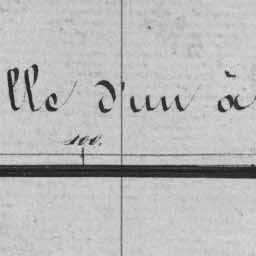 lle d'un à
100.